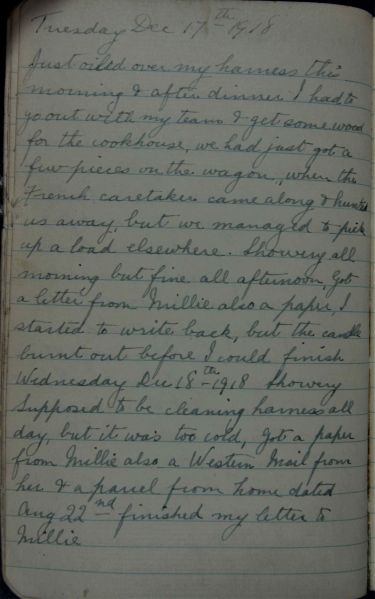 Tuesday Dec 17th 1918
Just oiled over my harness this
morning & after dinner I had to
go out with my team & get some wood
for the cookhouse, we had just got a
few pieces on the wagon, when the
French caretaker came along & hunted
us away, but we managed to pick
up a load elsewhere. Showery all
morning but fine all afternoon, Got
a letter from Millie also a paper, I
started to write back, but the candle
burnt out before I could finish
Wednesday Dec 18th 1918 Showery
Supposed to be cleaning harness all
day, but it was too cold, Got a paper
from Millie also a Western Mail from
her & a parcel from home dated
Aug 22nd finished my letter to
Millie